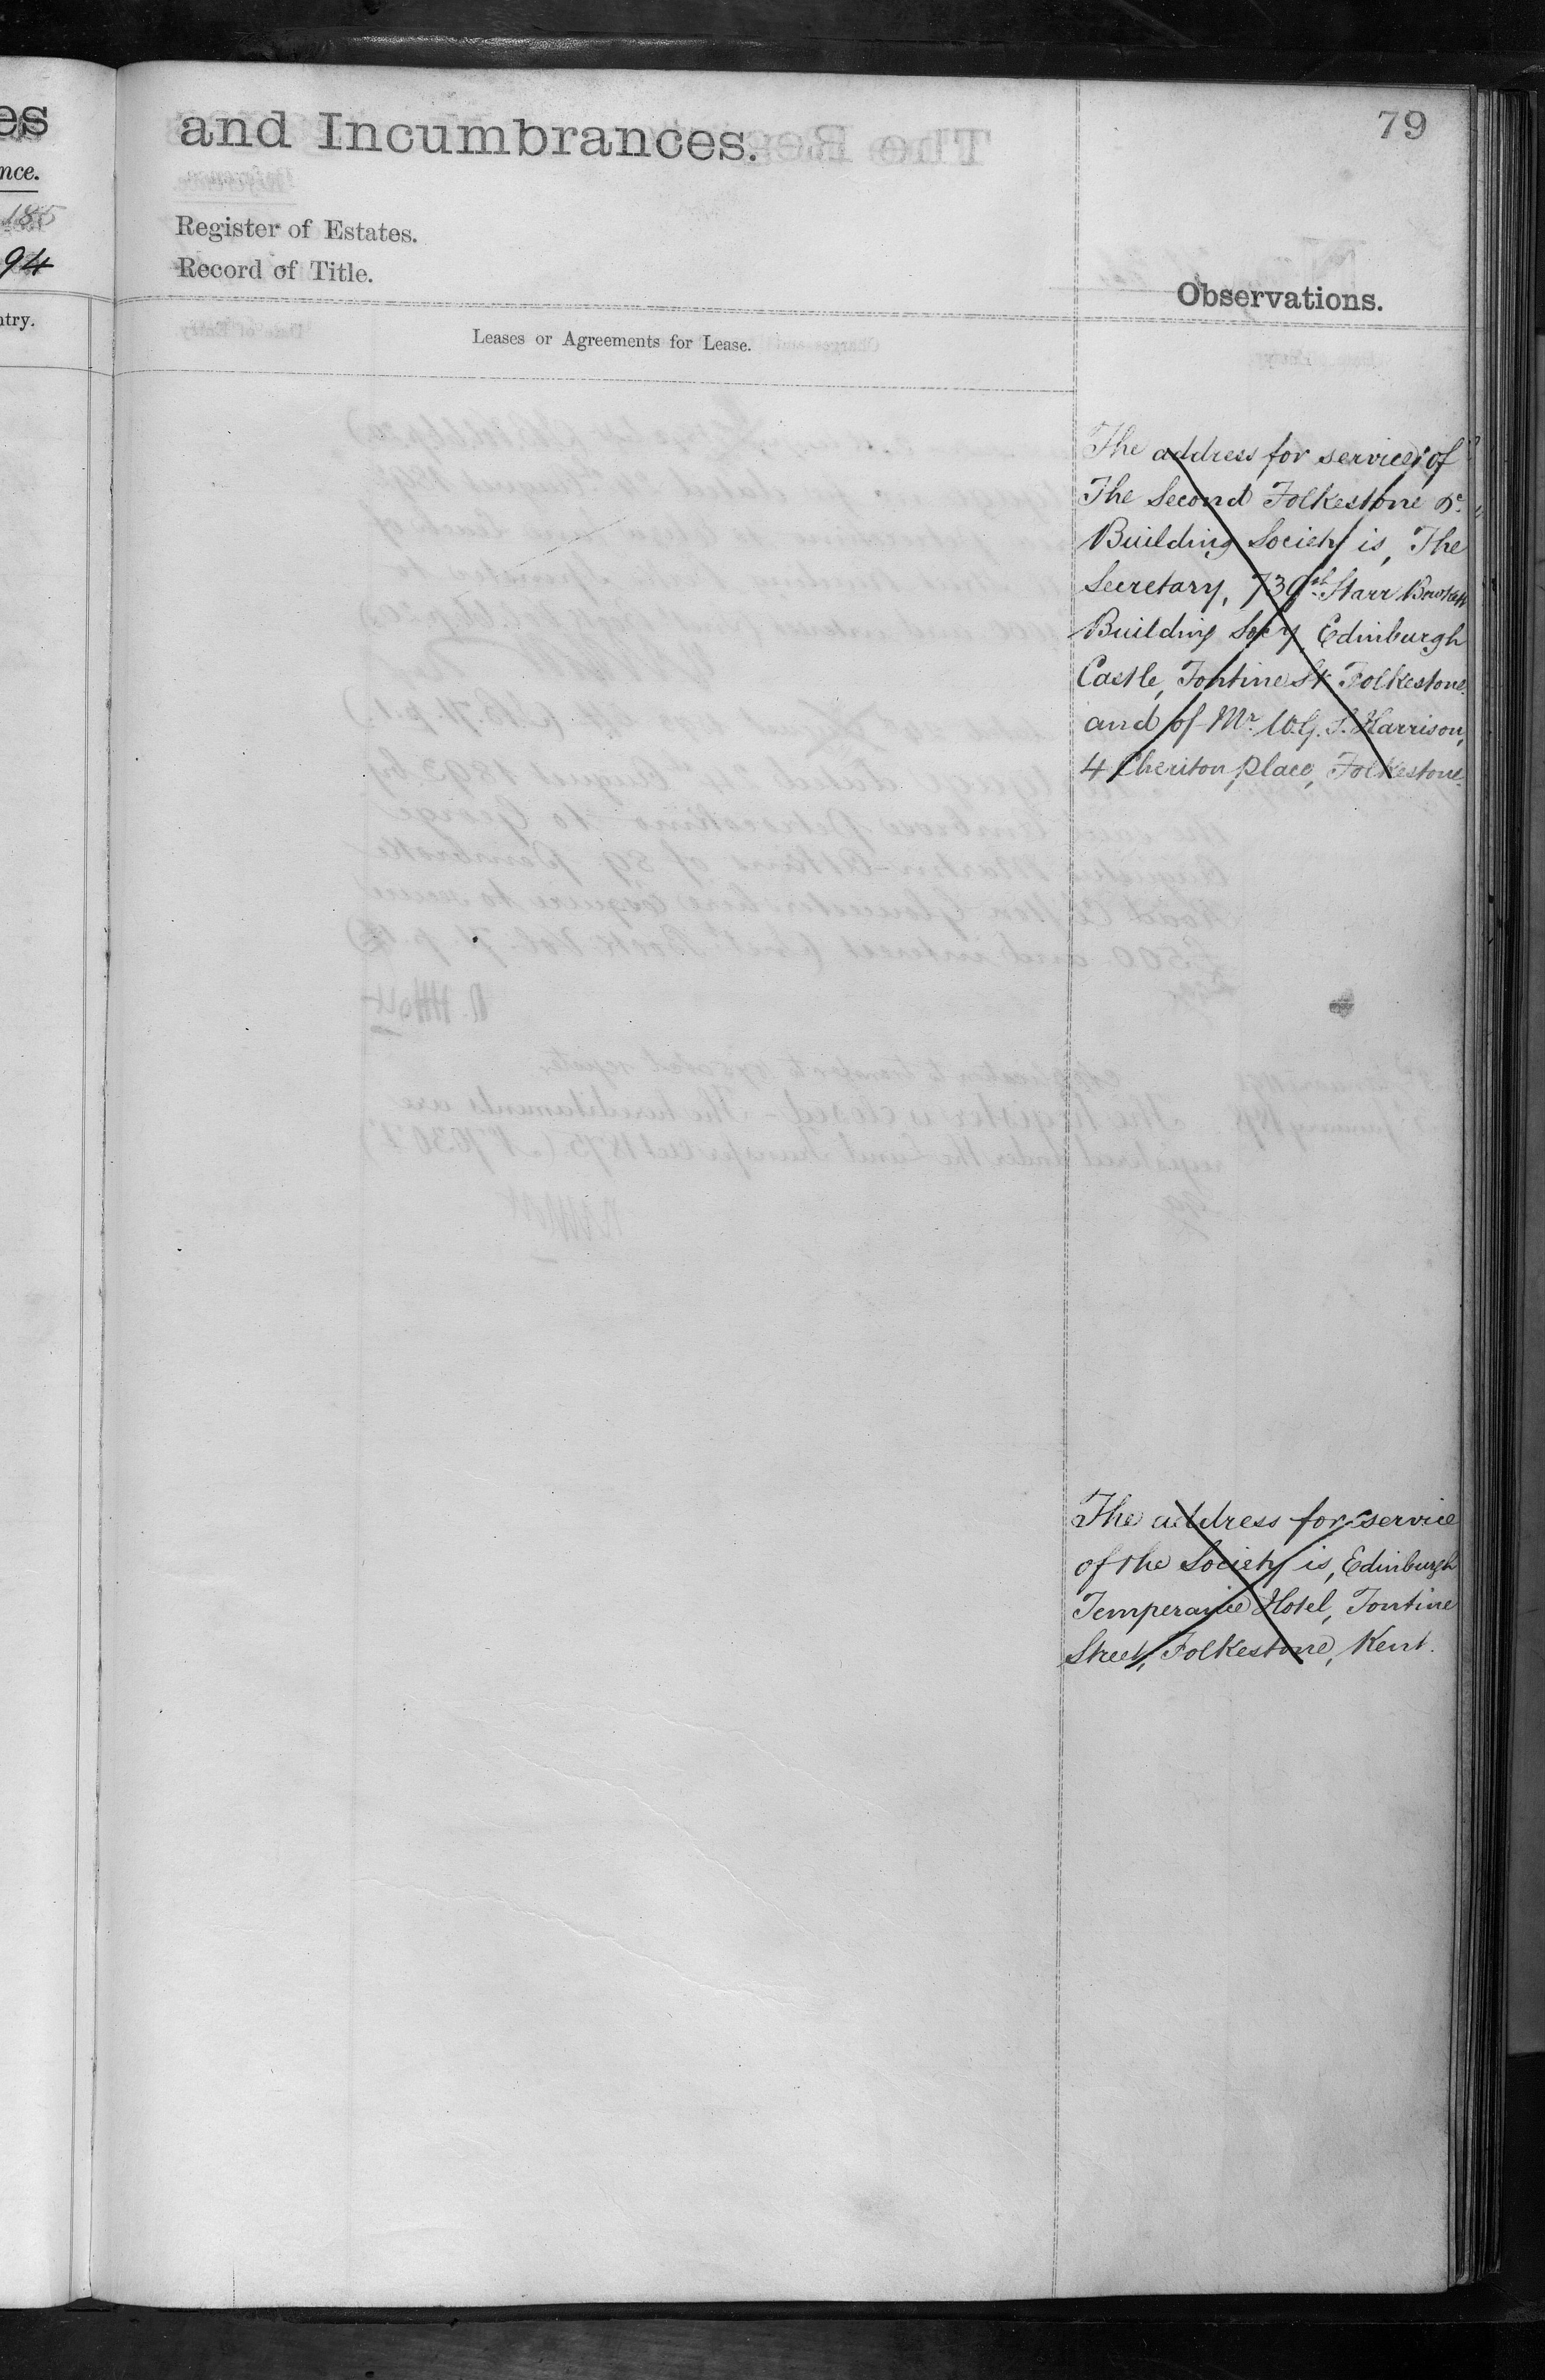 es
nce.
185
94
ntry.
and Incumbrances.
79
Register of Estates.
Record of Title.
Observations.
Leases or Agreements for Lease.
The address for service of
The Second Folkestone &c.
Building Society is, The
Secretary, 739th Starr Bowkett
Building Socy, Edinburgh
Castle, Tontine St. Folkestone.
and of Mr W.G.S. Harrison,
4 Cheriton place, Folkestone.
The address for service
of the Society is, Edinburgh
Temperance Hotel, Tontine
Street, Folkestone, Kent.